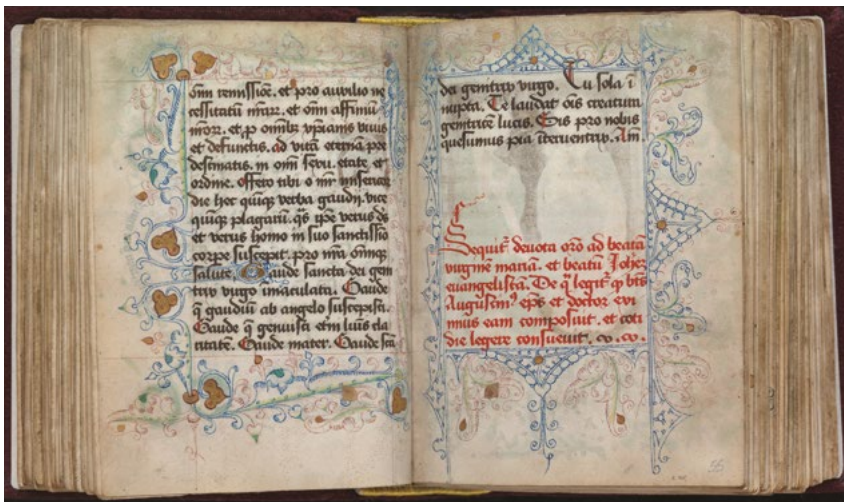 om̄ remissiōe. et pro auxilio ne
cessitatū mear̄. et om̄ affiniū
meor̄. et p̱ omnibꝫ xp̄ianis viuis
et defunctis. ad vitā eternā pre
destinatis. in om̄i sexu. etate et
ordine. offero tibi o mr̄ misericor
die hec quīqꝫ verba gaudij. vice
quīqꝫ plagarū. q̄s ip̄e verus ds̄
et verus homo in suo sanctissīo
corpe suscepit. pro nr̄a om̄iuqꝫ
salute. Gaude sancta dei geni
trix virgo īmaculata. Gaude
q̄ gaudiū ab angelo suscepisti.
Gaude q̄ genuisti etn̄i luīs cla
ritatē. Gaude mater. Gaude scā
dei genitrix virgo. Tu sola ī
nupta. Te laudat oīs creatura
genitricē lucis. Sis pro nobis
quesumus pia īteruentrix. Am̄.
Sequit᷑ deuota orō ad beatā
virginē mariā. et beatū Iohēꝫ
euangelistā. De q̄ legit᷑ ꝙ bt̄s
Augustinꝰ ep̄s et doctor exi
mius eam composuit. et coti
die legere consueuit.
55